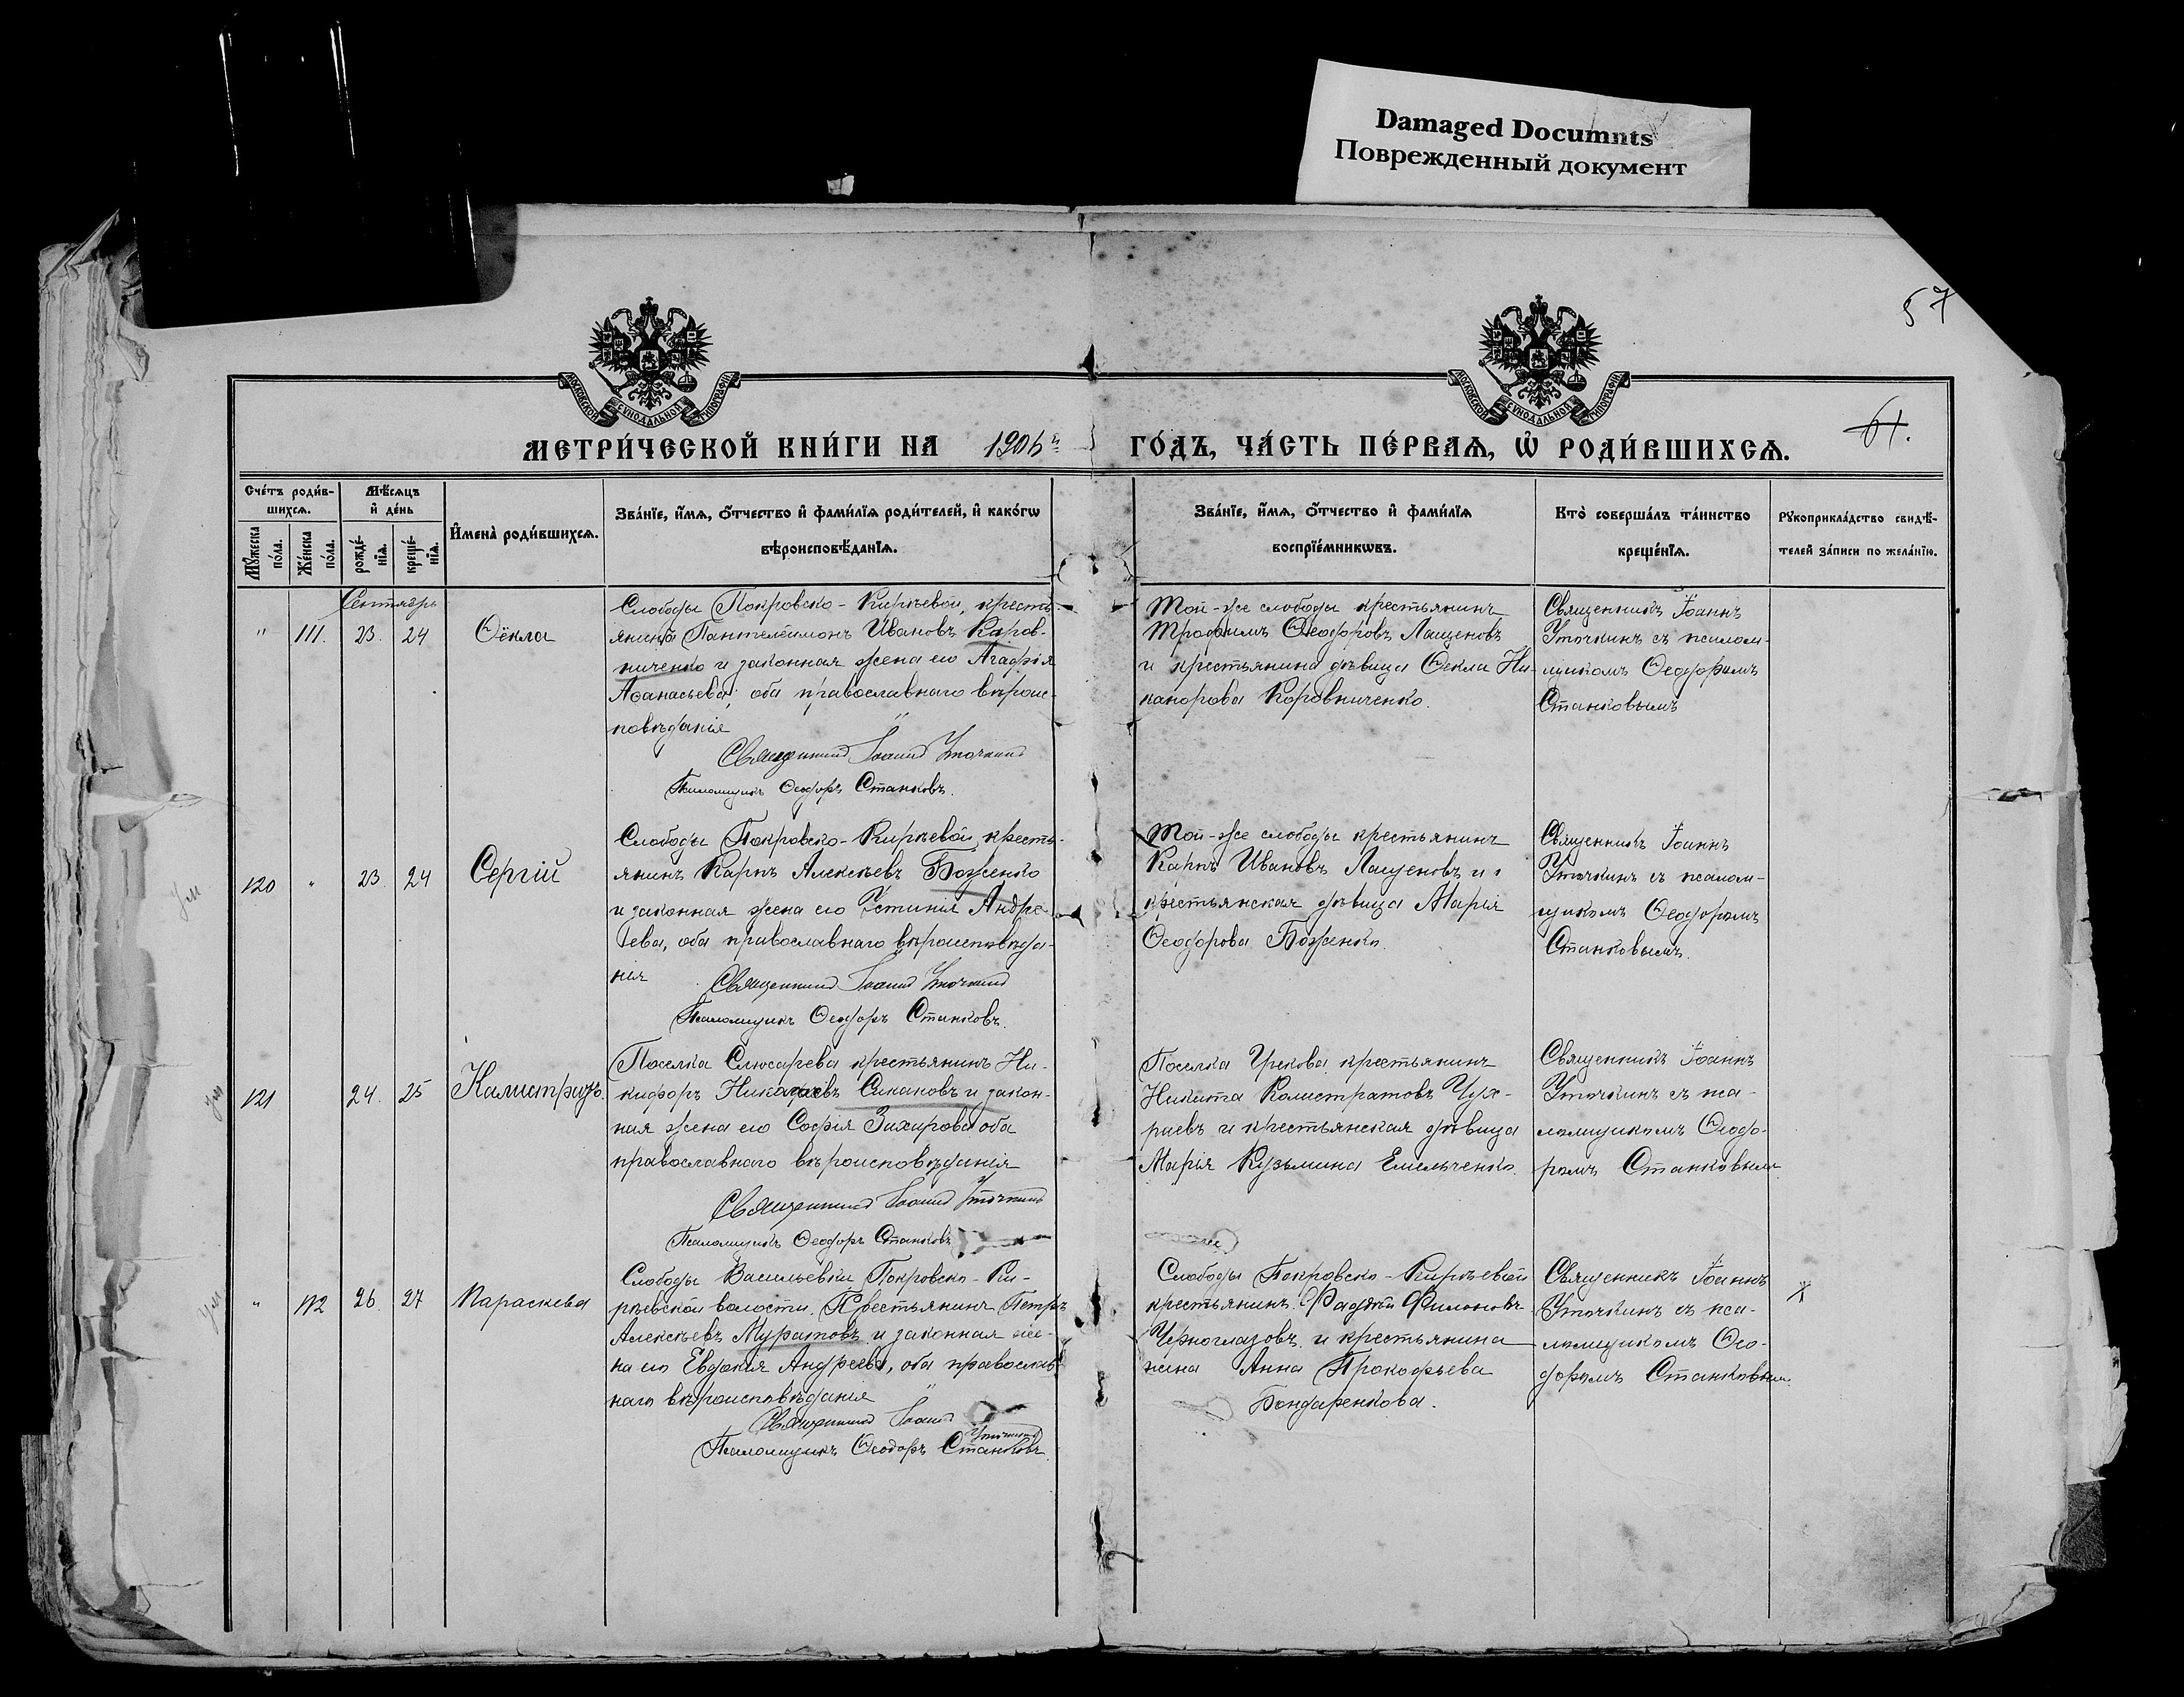 Damaged Documnts
Поврежденный документ
57
61.
МОСКОВСКОЙ СѴНОДАЛЬНОЙ ТИПОГРАФІИ
МОСКОВСКОЙ СѴНОДАЛЬНОЙ ТИПОГРАФІИ
МЕТРИ́ЧЕСКОЙ КНИ́ГИ НА 1906й ГО́ДЪ, ЧА́СТЬ ПЕ́РВАѦ, Ѡ҆ РОДИ́ВШИХСѦ.
Сче́тъ роди́вшихсѧ.
Мѹ́жеска по́ла.
Же́нска по́ла.
Мѣ́сѧцъ и҆ де́нь
рожде́нїѧ.
креще́нїѧ.
И҆мена̀ роди́вшихсѧ.
Зва́нїе, и҆́мѧ, ѻ҆́тчество и҆ фами́лїѧ роди́телей, и҆ како́гѡ
вѣроисповѣ́данїѧ.
Зва́нїе, и҆́мѧ, ѻ҆́тчество и҆ фами́лїѧ
воспрїе́мникѡвъ.
Кто̀ соверша́лъ та́инство
креще́нїѧ.
Рѹкоприкла́дство свидѣ́-
телей за́писи по жела́нїю.
Сентябрь
" 111. 23. 24 Ѳёкла
Слободы Покровско-Кирѣевой, кресть-
янинъ Пантелеимонъ Ивановъ Каров-
ниченко и законная жена его Агафія
Аѳанасьева, оба православнаго вѣроис-
повѣданія
Священникъ Іоаннъ Уточкинъ
Псаломщикъ Ѳеодоръ Станковъ.
Той-же слободы крестьянинъ
Трофимъ Ѳеодоровъ Лащеновъ
и крестьянина дѣвица Ѳекла Ни-
канорова Коровниченко.
Священникъ Іоаннъ
Уточкинъ съ псалом-
щикомъ Ѳеодоромъ
Станковымъ
120 " 23. 24 Сергій
Слободы Покровско-Кирѣевой, кресть-
янинъ Карпъ Алексѣевъ Боженко
и законная жена его Устинія Андре-
ева, оба православнаго вѣроисповѣда-
нія
Священникъ Іоаннъ Уточкинъ
Псаломщикъ Ѳеодоръ Станковъ.
Той-же слободы крестьянинъ
Карпъ Ивановъ Лащеновъ и
крестьянская дѣвица Марія
Ѳеодорова Боженко.
Священникъ Іоаннъ
Уточкинъ съ псалом-
щикомъ Ѳеодоромъ
Станковымъ.
121 24. 25 Калистратъ.
Поселка Слюсарева крестьянинъ Ни-
кифоръ Симановъ и закон-
ная жена его Софія Захарова оба
православнаго вѣроисповѣданія
Священникъ Іоаннъ Уточкинъ
Псаломщикъ Ѳеодоръ Станковъ
Поселка Грекова крестьянинъ
Никита Калистратовъ Чух-
риевъ и крестьянская дѣвица
Марія Кузьмина Емельченко.
Священникъ Іоаннъ
Уточкинъ съ пса-
ломщикомъ Ѳеодо-
ромъ Станковымъ
" 112 26. 27 Параскева
Слободы Васильевки Покровско-Ки-
рѣевской волости. Крестьянинъ Петръ
Алексѣевъ Муратовъ и законная же-
на его Евдокія Андреева, оба православ-
наго вѣроисповѣданія
Священникъ Іоаннъ
Уточкинъ
Псаломщикъ Ѳеодоръ Станковъ.
Слободы Покровско-Кирѣевой
крестьянинъ Фаддѣй Филоновъ
Черноглазовъ и крестьянина
жена Анна Прокофьева
Бондаренкова.
Священникъ Іоаннъ
Уточкинъ съ пса-
ломщикомъ Ѳео-
доромъ Станковым.